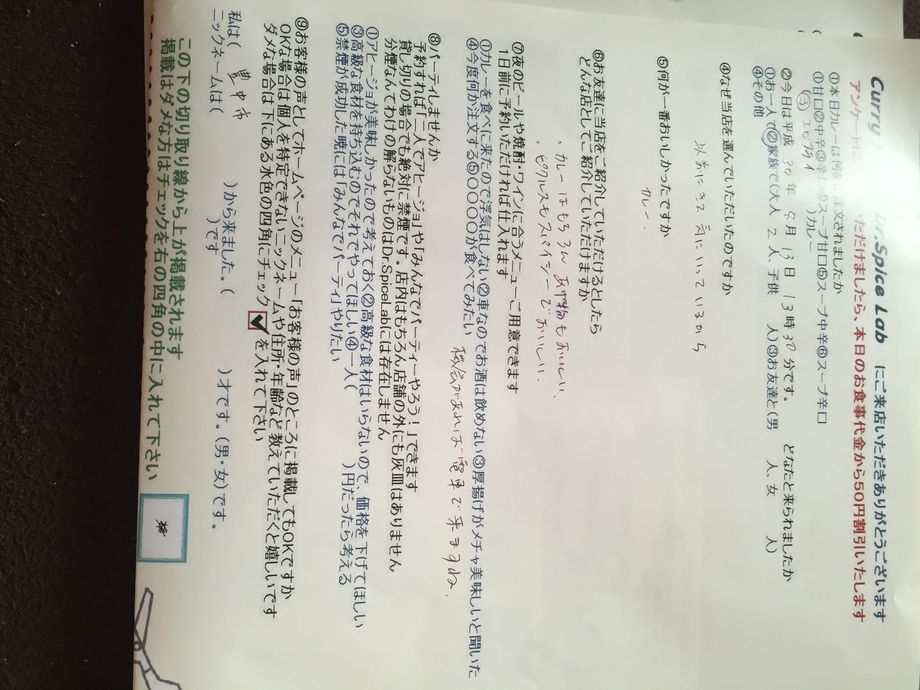 Curry Dr.Spice Lab にご来店いただきありがとうございます
アンケートに いただけましたら、本日のお食事代金から50円割引いたします
①本日カレーは何 注文されましたか
①甘口②中辛③辛口④スープ甘口⑤スープ中辛⑥スープ辛口
)カレー
②今日は平成 30年 8月 13日 13時30分です。 どなたと来られましたか
①お一人で②家族で(大人 2人、子供 人)③お友達と(男 人、女 人)
④その他
④なぜ当店を選んでいただいたのですか
以前にきて 気にいっているから
⑤何が一番おいしかったですか
カレー.
⑥お友達に当店をご紹介していただけるとしたら
どんな店としてご紹介していただけますか
・カレーはもちろん あげ物もおいしい.
・ピクルスもスパイシーでおいしい.
⑦夜のビールや焼酎・ワインに合うメニューご用意できます
1日前に予約いただければ仕入れます
①カレーを食べに来たので浮気はしない②車なのでお酒は飲めない③厚揚げがメチャ美味しいと聞いた
④今度何か注文する⑤〇〇〇〇が食べてみたい
機会があれば 電車で来ますね.
⑧パーティしませんか
予約すれば「二人でアヒージョ」や「みんなでパーティーやろう!」できます
貸し切りの場合でも絶対に禁煙です。店内はもちろん店舗の外にも灰皿はありません
分煙なんてわけの解らないものはDr.SpiceLabには存在しません
①アヒージョが美味しかったので考えておく②高級な食材はいらないので、価格を下げてほしい
③高級な食材を持ち込むのでそれでやってほしい④一人( )円だったら考える
⑤禁煙が成功した暁には「みんなでパーティ」やりたい
⑨お客様の声としてホームページのメニュー「お客様の声」のところに掲載してもOKですか
OKな場合は個人を特定できないニックネームや住所・年齢など教えていただくと嬉しいです
ダメな場合は下にある水色の四角にチェック✓を入れて下さい
私は( 豊中市 )から来ました。( )才です。(男・女)です。
ニックネームは( )です
この下の切り取り線から上が掲載されます
掲載はダメな方はチェックを右の四角の中に入れて下さい